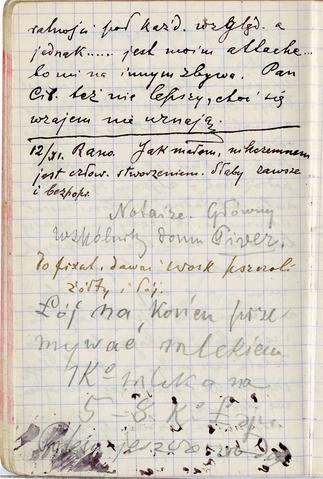 ralności pod każd. względ. a
jednak..... jest moim attache..
bo mi na innym zbywa. Pan
też nie lepszy, choć się
wzajem nie uznają.
12/XI. Rano. Jak małem, nikczemnem
jest człow. stworzeniem. Słaby zawsze
i bezpopr.
Notatże. Główny
wspólnik domu Piver.
To fixat. dawać wosk pszczeli
żółty i łój.
Łój na, Konień prze
mywać mlekiem
1K° mleka na
5-8 K°